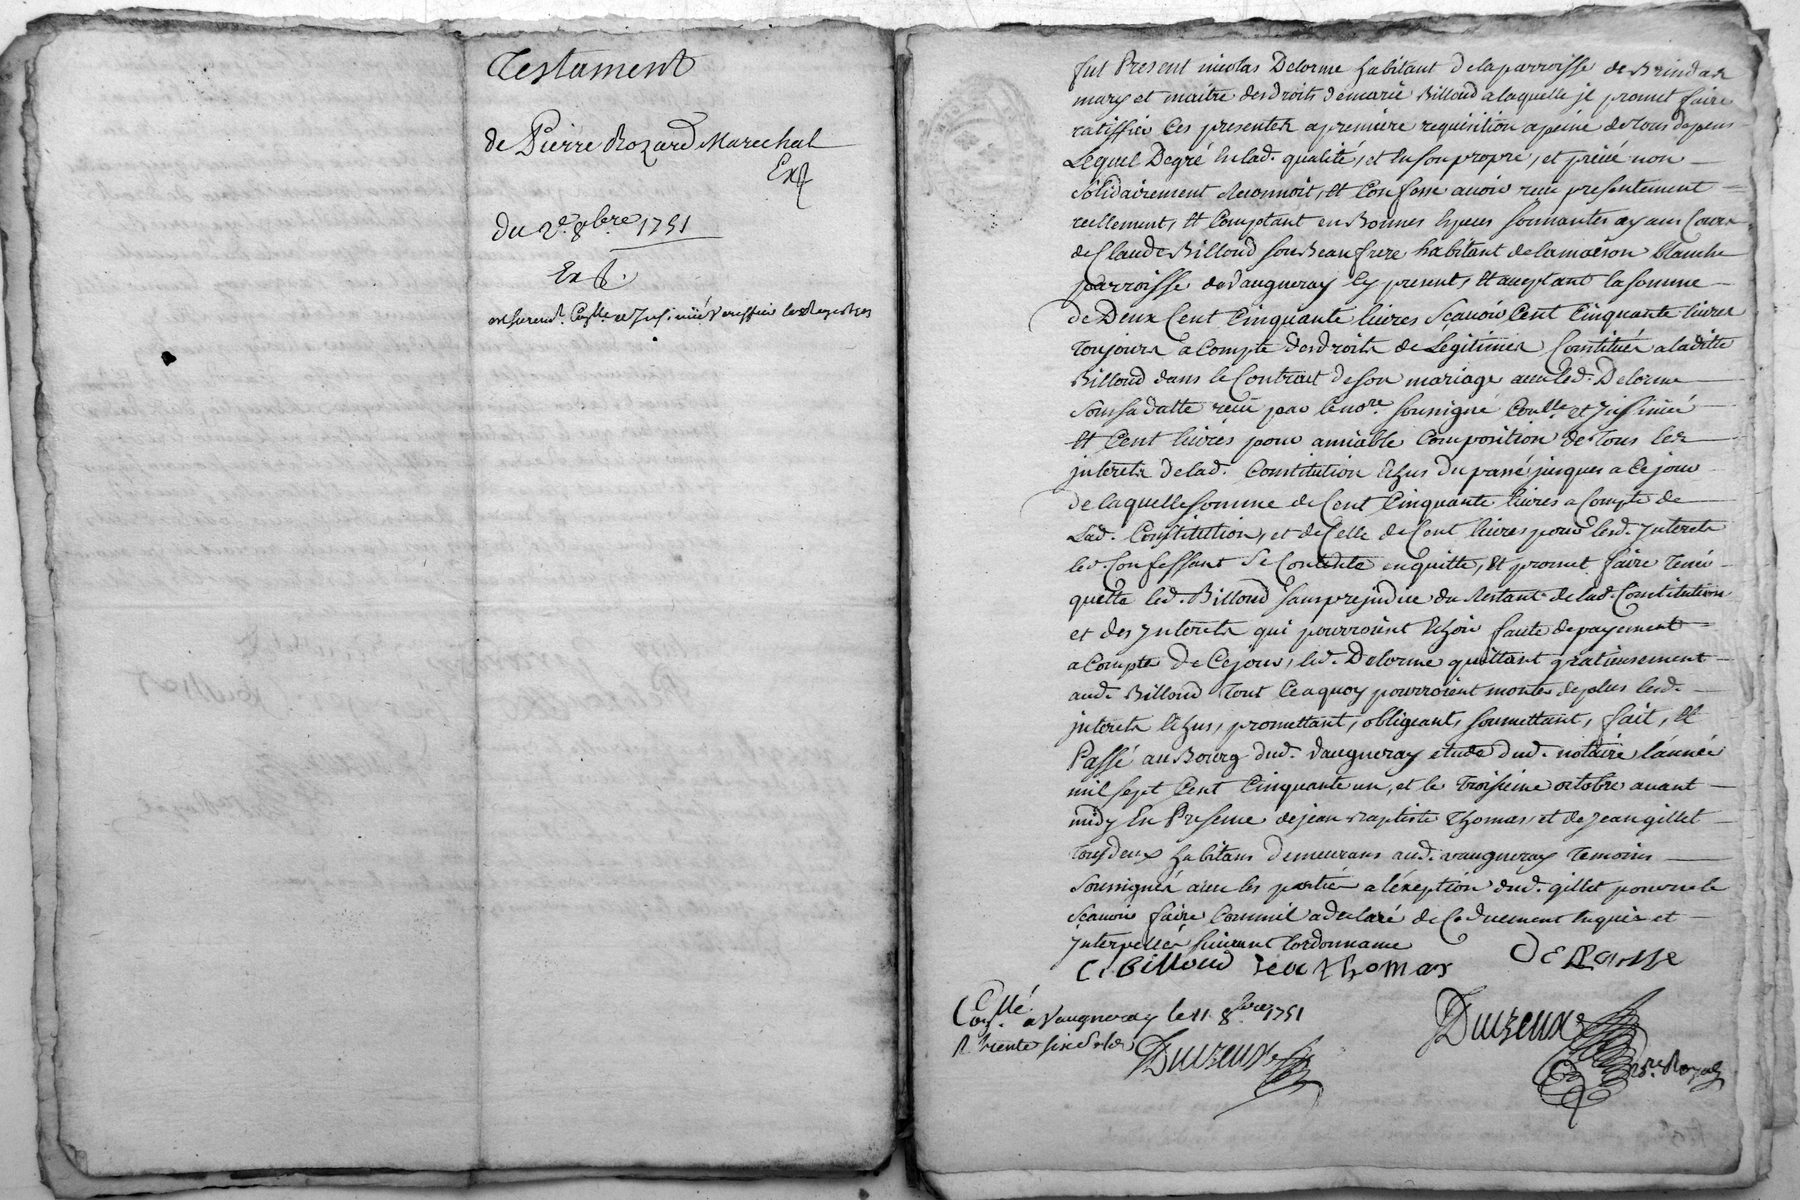 Testament
de Pierre Rozard Marechal
Ext
Du 2e. 8bre. 1751
Ext.
controllé et Insinué veriffier les Registres
fut Present nicolas Delorme habitant de la parroisse de Brindas
mary et maitre des droits de marie Billoud a laquelle jl promet faire
ratiffier Ces presentes a premiere requisition a peine de tous depens
Lequel Degré en lad. qualité, et en son propre, et privé non
Solidairement Reconnoit, Et Confesse avoir recu presentement
reellement, Et Comptant en Bonnes Especes sonnantes ayans Cours
de Claude Billoud son Beaufrere habitant de la maison blanche
parroisse de Vaugneray Cy present, Et acceptant la somme
de Deux Cent Cinquante livres Sçavoir Cent Cinquante livres
Toujours a Compte des droits de Legitimes Constitués a laditte
Billoud dans le Contrat de son mariage avec led. Delorme
sous sa datte recu par le nore. soussigné Conlle. et Jnsinué
Et Cent livres pour amiable Composition de Tous les
jnterets de lad. Constitution Echus du passé jusques a Ce jour
de laquelle somme de Cent Cinquante livres a Compte de
Lad. Constitution, et de Celle de Cent livres pour lesd. Jnterets
led. Confessant Se Contente en quitte, Et promet faire tenir
quitte led. Billoud sans prejudice du Restant de lad. Constitution
et des Jnterets qui pourroient Echoir faute de payement
a Compter de Ce jour, led. Delorme quittant gratieusement
aud. Billoud Tout Ce a quoy pourroient monter de plus lesd.
jnterets Echus, promettant, obligeant, soumettant, fait, Et
Passé au Bourg dud. Vaugneray etude dud. notaire L'année
mil sept Cent Cinquante un, et le Troisieme octobre avant
midy En Presence de jean Baptiste Thomas, et de Jean gillet
Tous deux habitans demeurans aud. vaugneray Temoins
Soussignés avec les parties a l'exeption dud. gillet pour ne le
Scavoir faire Comme il a declaré de Ce duement Enquis et
jnterpellés suivant l'ordonnance
Cl Billoud thomas
Duizeux
nre. Royal
Conllé. a Vaugneray le 11. 8bre 1751
R. trente six sols Duizeux